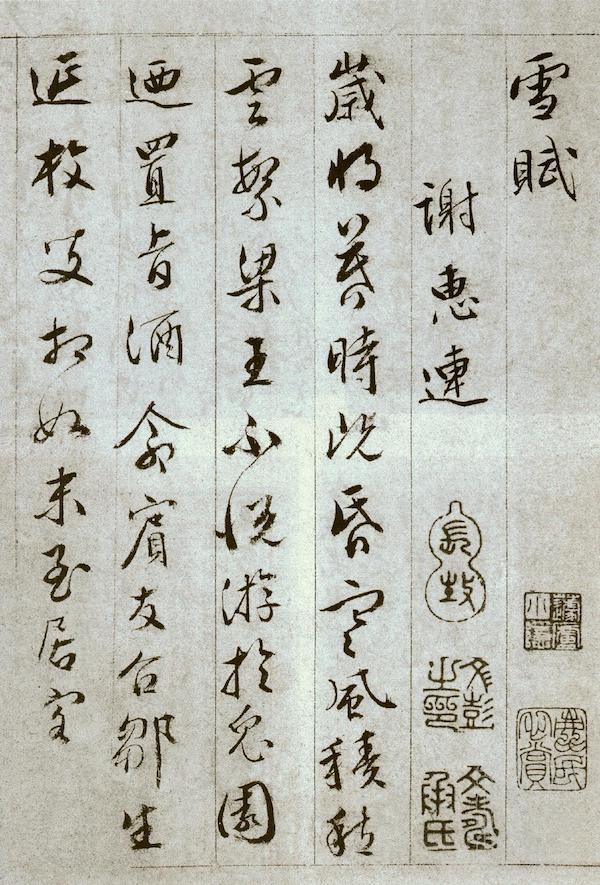 雪賦
謝惠連
文彭之印
文壽承氏
歲將暮時既昏寒風積愁
雲繁梁王不悅游於兔園
迺置旨酒命賓友召鄒生
延枚叟相如末至居客